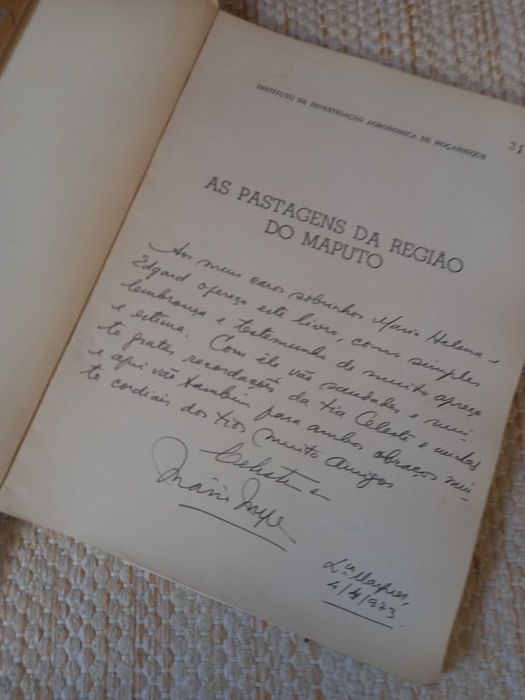 INSTITUTO DE INVESTIGAÇÃO AGRONÓMICA DE MOÇAMBIQUE
31
AS PASTAGENS DA REGIÃO
DO MAPUTO
Aos meus caros sobrinhos Maria Helena e
Edgard ofereço este livro, como simples
lembrança e testemunho de muito apreço
e estima. Com êle vão saudades e mui-
to gratas recordações da tia Celeste e minhas
e aqui vão também para ambos abraços mui-
to cordiais dos tios muito amigos
Celeste e
Mário
L.ço Marques,
4/4/973.